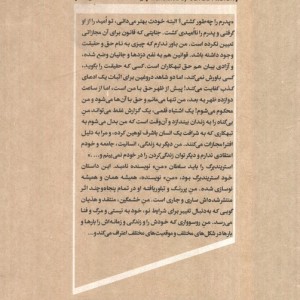 «پدرم را چه‌طور کشتی؟ البته خودت بهتر می‌دانی، تو امید را از او
گرفتی و پدرم را ناامیدی کشت. جنایتی که قانون برای آن مجازاتی
تعیین نکرده است. من باور ندارم که چیزی به نام حق و حقیقت
وجود داشته باشد، قوانین هم به نفع دزدها و جانیان وضع شده،
و آزادی بیان هم حق تبهکاران است. کسی که حقیقت را بگوید،
کسی باورش نمی‌کند، اما دو شاهد دروغین برای اثبات یک ادعای
کذب کفایت می‌کند! پیش از ظهر حق با من است، اما بعد از ساعت
دوازده ظهر به بعد، من تنها می‌مانم و حق با تو و به جای تو من
محکوم می‌شوم! یک اشتباه لفظی، یک گزارش غلط می‌تواند من
بی‌گناه را به زندان بیندازد و آن‌وقت است که من بدل می‌شوم به
تبهکاری که به شرافت یک انسان باشرف توهین کرده، و مرا به دلیل
افترا مجازات می‌کنند. من دیگر به زندگی، انسانیت، جامعه و خودم
اعتقادی ندارم و دیگر توان زندگی‌کردن را در خودم نمی‌بینم و...»
استریندبرگ را باید سلطان «من» نویسنده نامید. این داستان
استریندبرگ است. «من» نویسنده، همیشه همان و همیشه
نوسازی شده. من پررنگ و نیاورفایته او در تمام پنجاه‌وچند اثر
منتشرشده‌اش ساری و جاری است. من خشمگین، منتقد و هذیان
گویی که به‌دنبال تغییر برای شرایط نو، خود به نیستی و مرگ و فنا
می‌رسد. من روسوواری که خودش را و زندگی و زمانه‌اش را بارها و
بارها در شکل‌های مختلف و موقعیت‌های مختلف اعتراف می‌کند و...